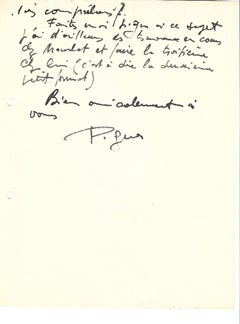 très compréhensif.
Faites moi signe à ce sujet
j'ai d'ailleurs des travaux en cours
chez et faire la troisième
chez lui (c'est à dire la deuxième
petit format)
Bien amicalement à
vous